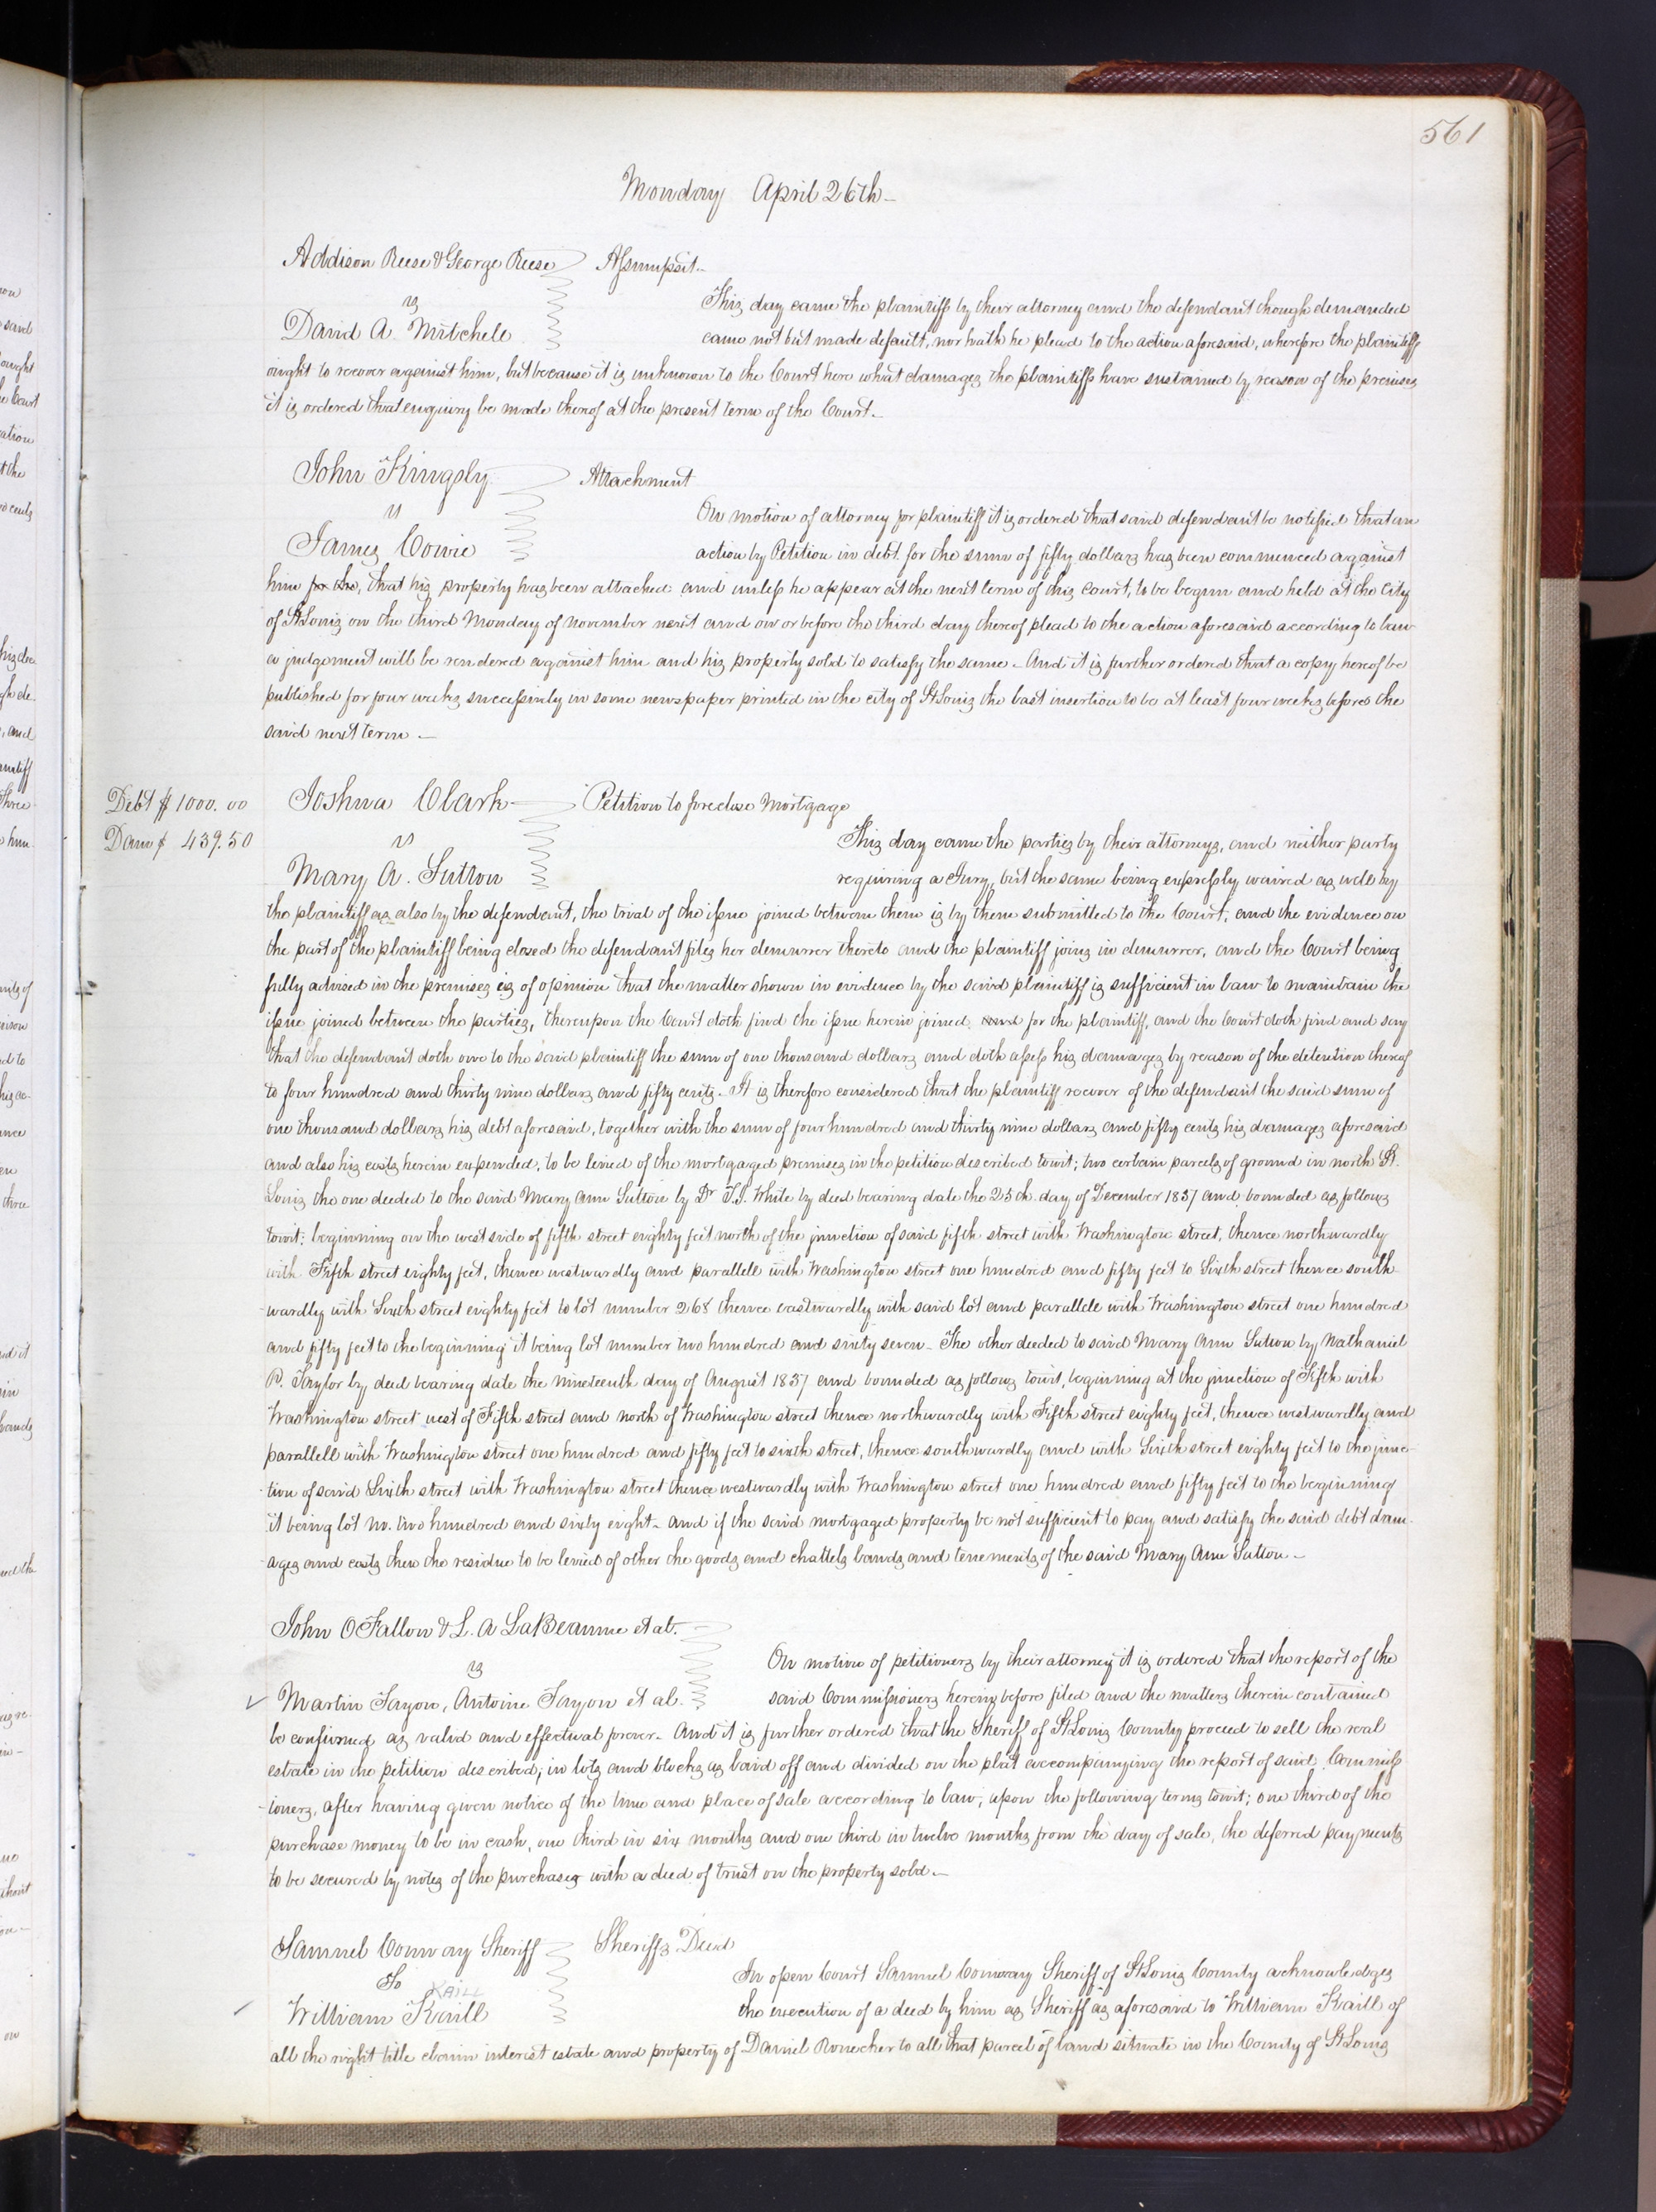 561
Monday April 26th
Addison Reese & George Reese Assumpsit.
vs This day came the plaintiffs by their attorney and the defendant though demanded
David A. Mitchell came not but made default, nor hath he plead to the action aforesaid, wherefore the plaintiffs
ought to recover against him, but because it is unknown to the Court here what damages the plaintiffs have sustained by reason of the premises
it is ordered that enquiry be made thereof at the present term of the Court.
John Kingsly Attachment
vs On motion of attorney for plaintiff it is ordered that said defendant be notified that an
James Cowie action by Petition in debt for the sum of fifty dollars has been commenced against
him for the, that his property has been attached and unless he appear at the next term of this court, to be begun and held at the City
of St Louis on the third Monday of November next and on or before the third day thereof plead to the action aforesaid according to law
a judgement will be rendered against him and his property sold to satisfy the same. And it is further ordered that a copy hereof be
published for four weeks successively in some newspaper printed in the city of St Louis the last insertion to be at least four weeks before the
said next term
Debt $ 1000.00 Joshua Clark Petition to foreclose Mortgage
Dam $ 439.50 vs This day came the parties by their attorneys, and neither party
Mary A. Sutton requiring a Jury, but the same being expressly waived as well by
the plaintiff as also by the defendant, the trial of the issue joined between them is by them submitted to the Court, and the evidence on
the part of the plaintiff being closed the defendant files her demurrer thereto and the plaintiff joins in demurrer, and the Court being
fully advised in the premises is of opinion that the matter shown in evidence by the said plaintiff is sufficient in law to maintain the
issue joined between the parties, thereupon the Court doth find the issue herein joined for the plaintiff, and the Court doth find and say
that the defendant doth owe to the said plaintiff the sum of one thousand dollars and doth assess his damages by reason of the detention thereof
to four hundred and thirty nine dollars and fifty cents. It is therefore considered that the plaintiff recover of the defendant the said sum of
one thousand dollars his debt aforesaid, together with the sum of four hundred and thirty nine dollars and fifty cents his damages aforesaid
and also his costs herein expended, to be levied of the mortgaged premises in the petition described towit; two certain parcels of ground in north St.
Louis the one deeded to the said Mary Ann Sutton by Dr T.J. White by deed bearing date the 25th day of December 1837 and bounded as follows
towit: beginning on the west side of fifth street eighty feet north of the junction of said fifth street with Washington street, thence northwardly
with Fifth street eighty feet, thence westwardly and parallell with Washington street one hundred and fifty feet to Sixth street thence south-
wardly with Sixth street eighty feet to lot number 268 thence eastwardly with said lot and parallele with Washington street one hundred
and fifty feet to the beginning it being lot number two hundred and sixty seven. The other deeded to said Mary Ann Sutton by Nathaniel
P. Taylor by deed bearing date the nineteenth day of August 1837 and bounded as follows towit, beginning at the junction of Fifth with
Washington street west of Fifth street and north of Washington street thence northwardly with Fifth street eighty feet, thence westwardly and
parallell with Washington street one hundred and fifty feet to sixth street, thence southwardly and with Sixth street eighty feet to the junc-
tion of said Sixth street with Washington street thence westwardly with Washington street one hundred and fifty feet to the beginning
it being lot no. two hundred and sixty eight. and if the said mortgaged property be not sufficient to pay and satisfy the said debt dam-
ages and costs then the residue to be levied of other the goods and chattels lands and tenements of the said Mary Ann Sutton.
John OFallon & L. A LaBeaume et al.
vs On motion of petitioners by their attorney it is ordered that the report of the
Martin Tayon, Antoine Tayon et al. said Commissioners herein before filed and the matters therein contained
be confirmed as valid and effectual forever. And it is further ordered that the Sheriff of St Louis County proceed to sell the real
estate in the petition described, in lots and blocks as laid off and divided on the plat accompanying the report of said Commiss
ioners, after having given notice of the time and place of sale according to law, upon the following terms towit; one third of the
purchase money to be in cash, one third in six months and one third in twelve months from the day of sale, the deferred payments
to be secured by notes of the purchaser with a deed of trust on the property sold.
Samuel Conway Sheriff Sheriffs Deed
To In open Court Samuel Conway Sheriff of St Louis County acknowledges
KAILL
William Kaill the execution of a deed by him as Sheriff as aforesaid to William Kaill of
all the right title claim interest estate and property of Daniel to all that parcel of land situate in the County of St Louis